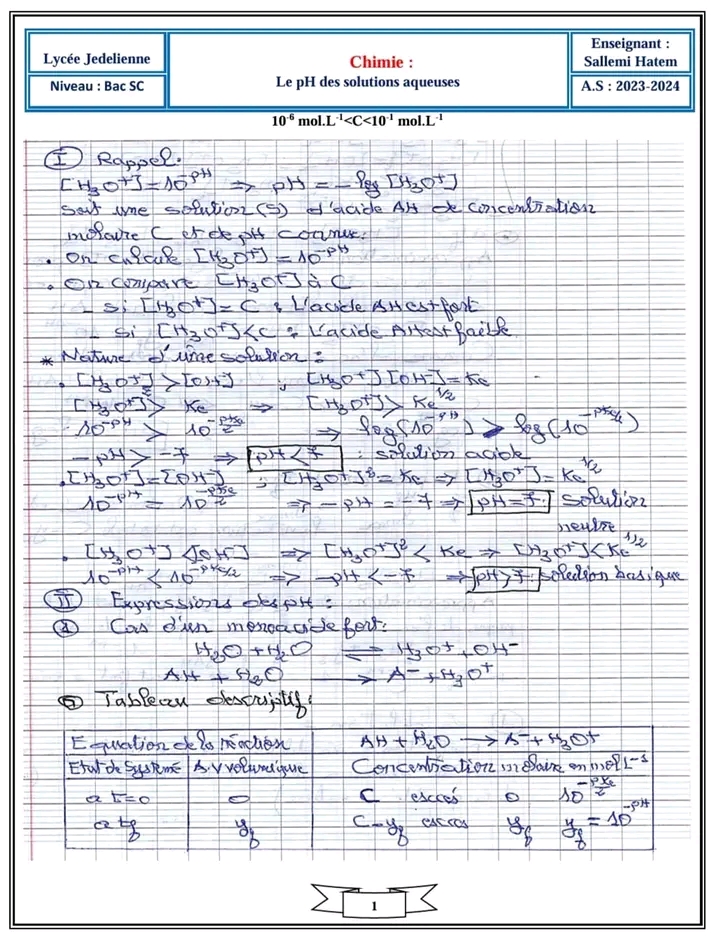 Lycée Jedelienne
Niveau : Bac SC
Chimie :
Le pH des solutions aqueuses
Enseignant :
Sallemi Hatem
A.S : 2023-2024
10⁻⁶ mol.L⁻¹<C<10⁻¹ mol.L⁻¹
I Rappel.
[H₃O⁺]=10⁻ᵖᴴ ⇒ pH = -log [H₃O⁺]
Soit une solution (S) d'acide AH de concentration
molaire C et de pH connue.
. On calcule [H₃O⁺] = 10⁻ᵖᴴ
. On compare [H₃O⁺] à C
- si [H₃O⁺] = C : L'acide AH est fort
- si [H₃O⁺]<C : L'acide AH est faible.
* Nature d'une solution :
. [H₃O⁺] > [OH⁻] ; [H₃O⁺][OH⁻] = Ke
[H₃O⁺]² > Ke ⇒ [H₃O⁺] > Ke^1/2
10⁻ᵖᴴ > 10^-pKe/2 ⇒ log(10⁻ᵖᴴ) > log(10^-pKe/2)
-pH > -7 ⇒ pH < 7 : solution acide
. [H₃O⁺]=[OH⁻] ; [H₃O⁺]² = Ke ⇒ [H₃O⁺] = Ke^1/2
10⁻ᵖᴴ = 10^-pKe/2 ⇒ -pH = -7 ⇒ pH = 7 : solution
neutre
. [H₃O⁺] < [OH⁻] ⇒ [H₃O⁺]² < Ke ⇒ [H₃O⁺] < Ke^1/2
10⁻ᵖᴴ < 10^-pKe/2 ⇒ -pH < -7 ⇒ pH > 7 : solution basique
II Expressions des pH :
1 Cas d'un monoacide fort :
H₂O + H₂O ⇌ H₃O⁺ + OH⁻
AH + H₂O → A⁻ + H₃O⁺
Tableau descriptif :
Equation de la réaction AH + H₂O → A⁻ + H₃O⁺
Etat de Système A.V volumique Concentration molaire en mol L⁻¹
a t=0 0 C excès 0 10^-pKe/2
a tf yf C-yf excès yf yf = 10⁻ᵖᴴ
1